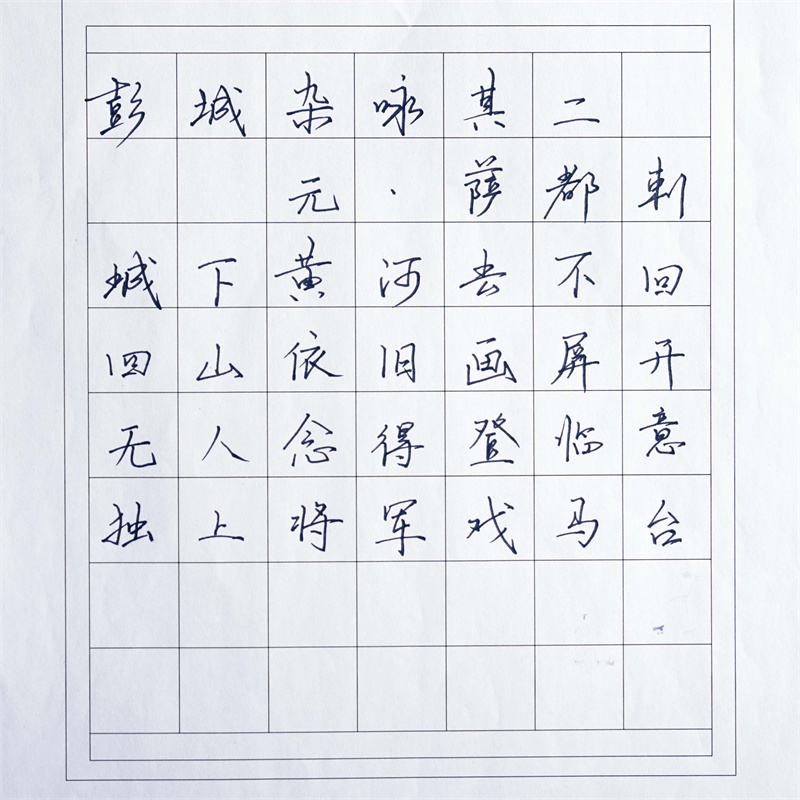 彭城杂咏其二
元·萨都剌
城下黄河去不回
四山依旧画屏开
无人念得登临意
独上将军戏马台